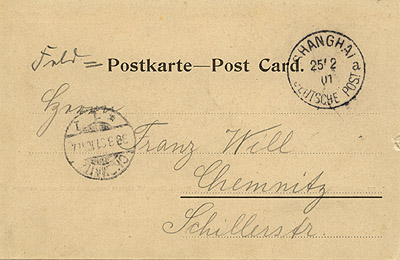 Feld=
Postkarte—Post Card.
SHANGHAI
25/2
01
a
DEUTSCHE POST
Herrn
Franz Will
Chemnitz
Schillerstr.